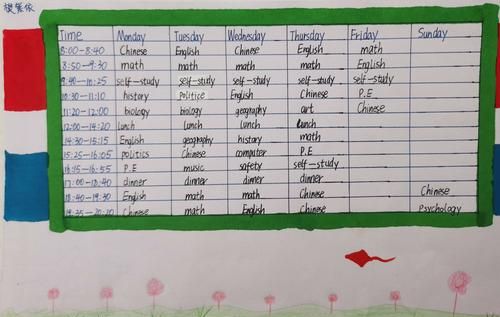 Time Monday Tuesday Wednesday Thursday Friday Sunday
8:00—8:40 Chinese English Chinese English math
8:50—9:30 math math math math English
9:40—10:25 self-study self-study self-study self-study self-study
10:30—11:10 history politice English Chinese P.E
11:20—12:00 biology biology geography art Chinese
12:00—14:20 lunch lunch lunch lunch
14:30—15:15 English geography history math
15:25—16:05 politics Chinese computer P.E
16:15—16:55 P.E music safety self-study
17:00—18:40 dinner dinner dinner dinner
18:40—19:30 English math math Chinese Chinese
19:35—20:20 Chinese math English Chinese Psychology